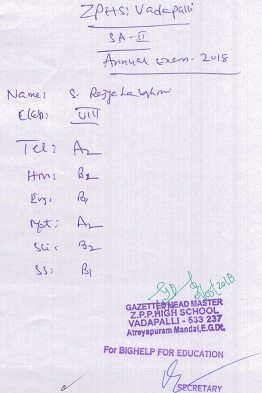 ZPHS: Vadapalli
SA-II
Annual exam-2018
Name: S. Rajya Lakshmi
Class: VIII
Tel: A2
Hin: B2
Eng: B1
Mat: A2
Sci: B2
SS: B1
GAZETTED HEAD MASTER
Z.P.P.HIGH SCHOOL
VADAPALLI - 533 237
Atreyapuram Mandal,E.G.Dt,
For BIGHELP FOR EDUCATION
SECRETARY